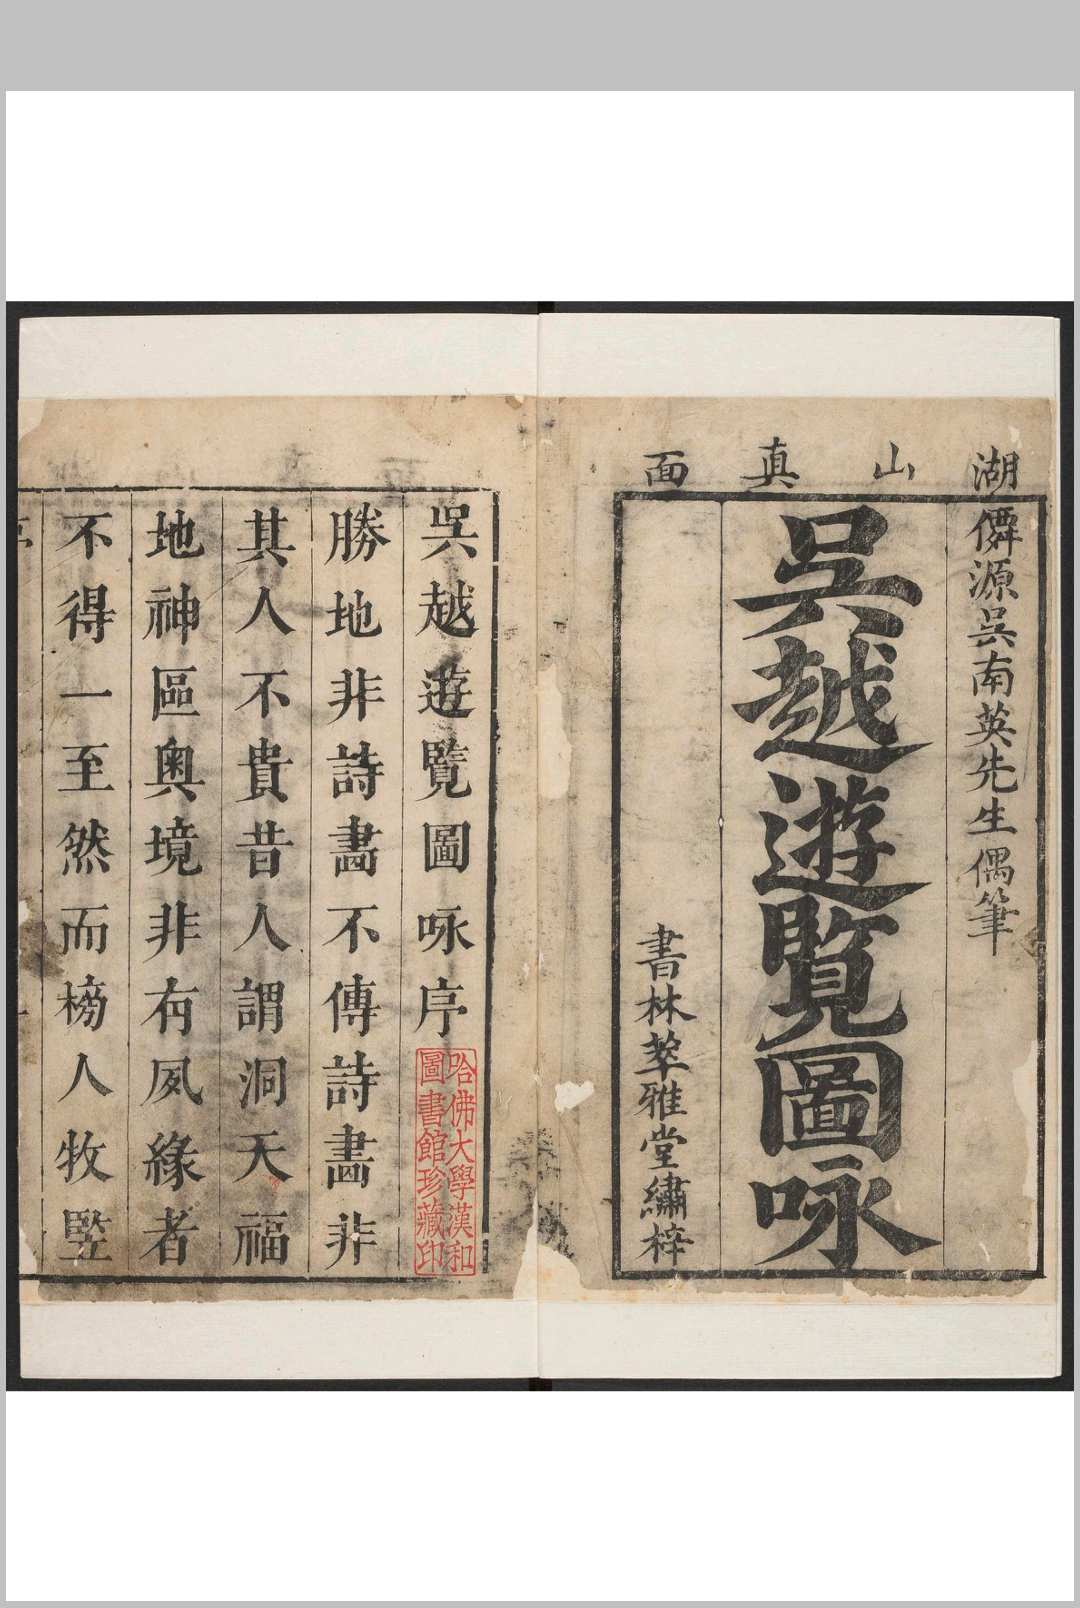 湖山真面
僲源吳南英先生偶筆
吳越遊覽圖咏
書林萃雅堂繡梓
吳越遊覽圖咏序
哈佛大學漢和
圖書館珍藏印
勝地非詩畵不傳詩畵非
其人不貴昔人謂洞天福
地神區奥境非有夙緣者
不得一至然而榜人牧竪